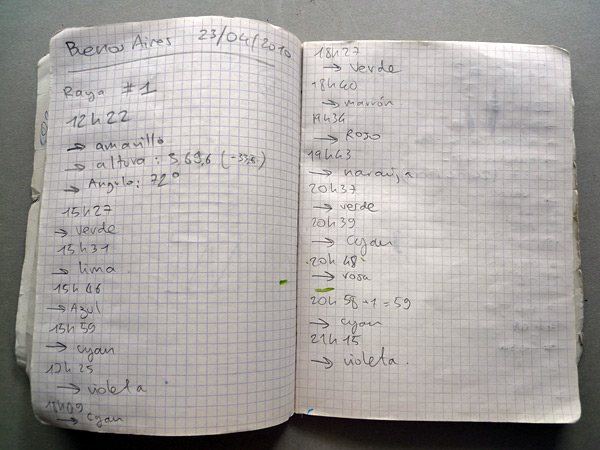 Buenos Aires 23/04/2010
Raya #1
12h22
→ amarillo
→ altura : 369,6 (-33,6)
→ Angulo : 72°
15h27
→ verde
15h31
→ lima
15h46
→ Azul
15h59
→ cyan
17h25
→ violeta
18h09
→ cyan
18h27
→ verde
18h40
→ marrón
19h34
→ Rojo
19h43
→ naranja
20h37
→ verde
20h39
→ cyan
20h48
→ rosa
20h58+1=59
→ cyan
21h15
→ violeta.